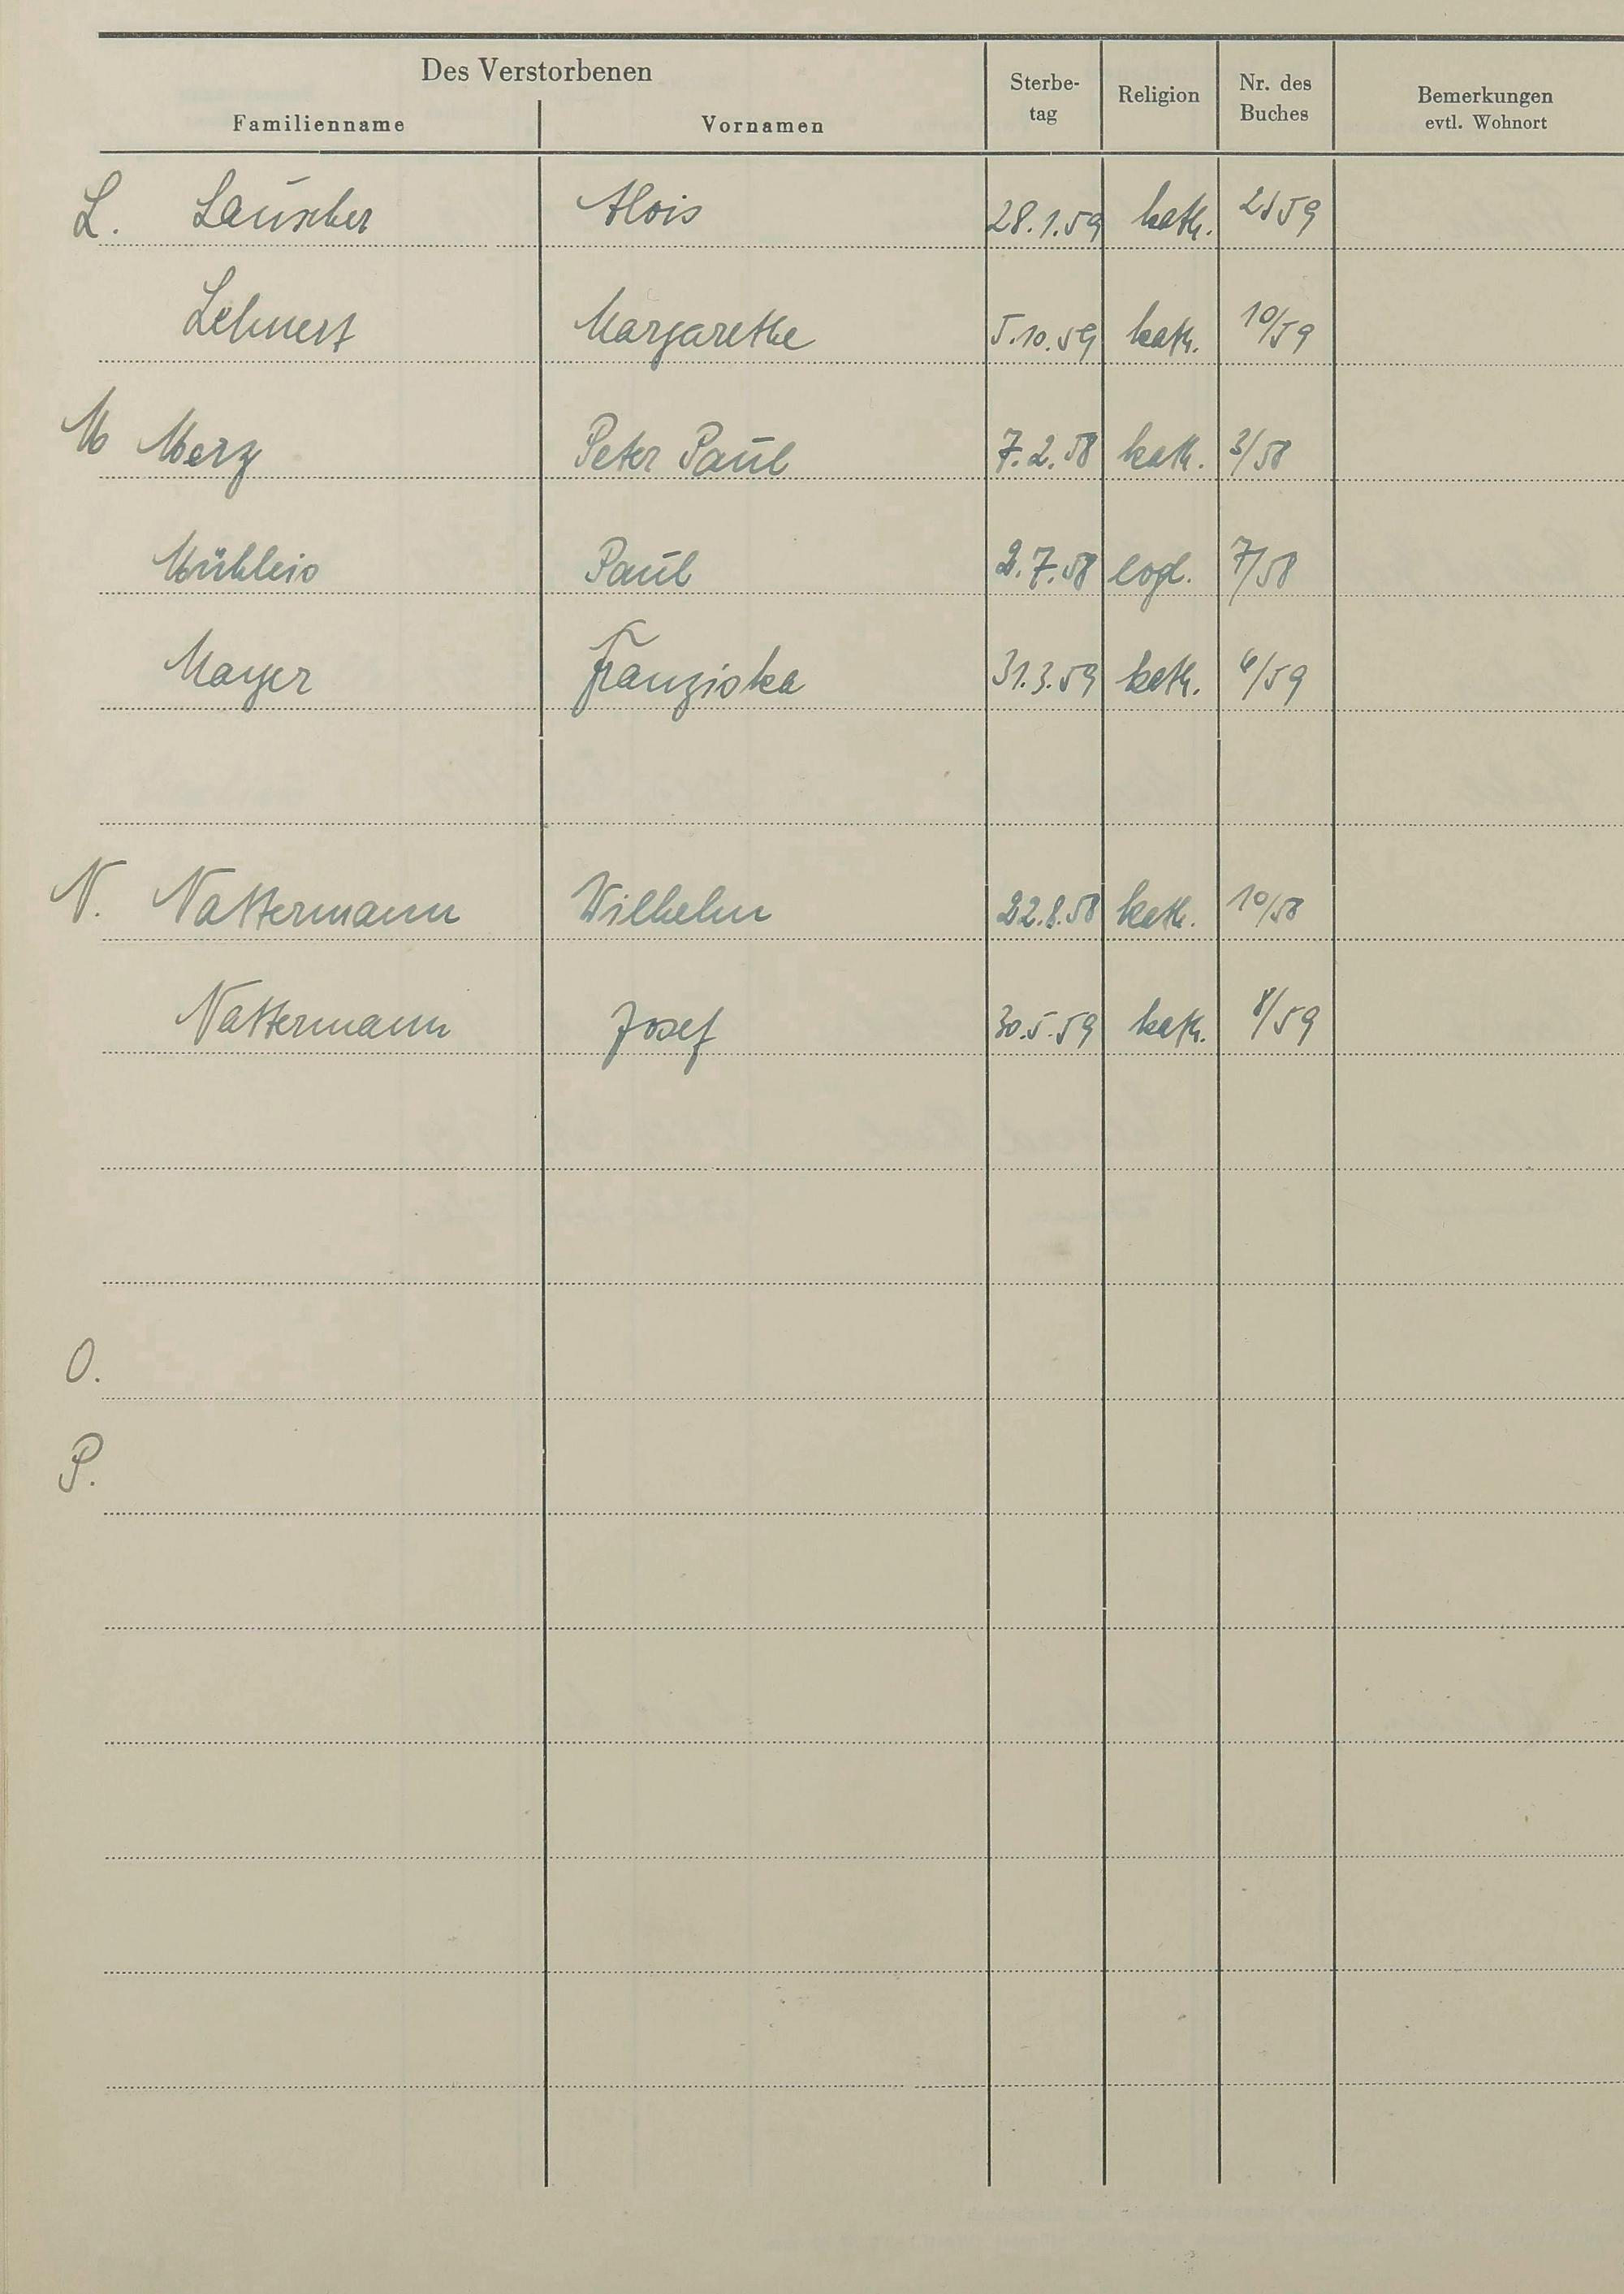 Des Verstorbenen
Familienname Vornamen Sterbe-tag Religion Nr. des Buches Bemerkungen evtl. Wohnort
L. Lauscher Alois 28.1.59 kath. 2/59
Lehnert Margarethe 5.10.59 kath. 10/59
M Merz Peter Paul 7.2.58 kath. 3/58
Paul 2.7.58 evgl. 7/58
Mayer Franziska 31.3.59 kath. 6/59
N. Nattermann Wilhelm 22.8.58 kath. 10/58
Nattermann Josef 30.5.59 kath. 8/59
O.
P.